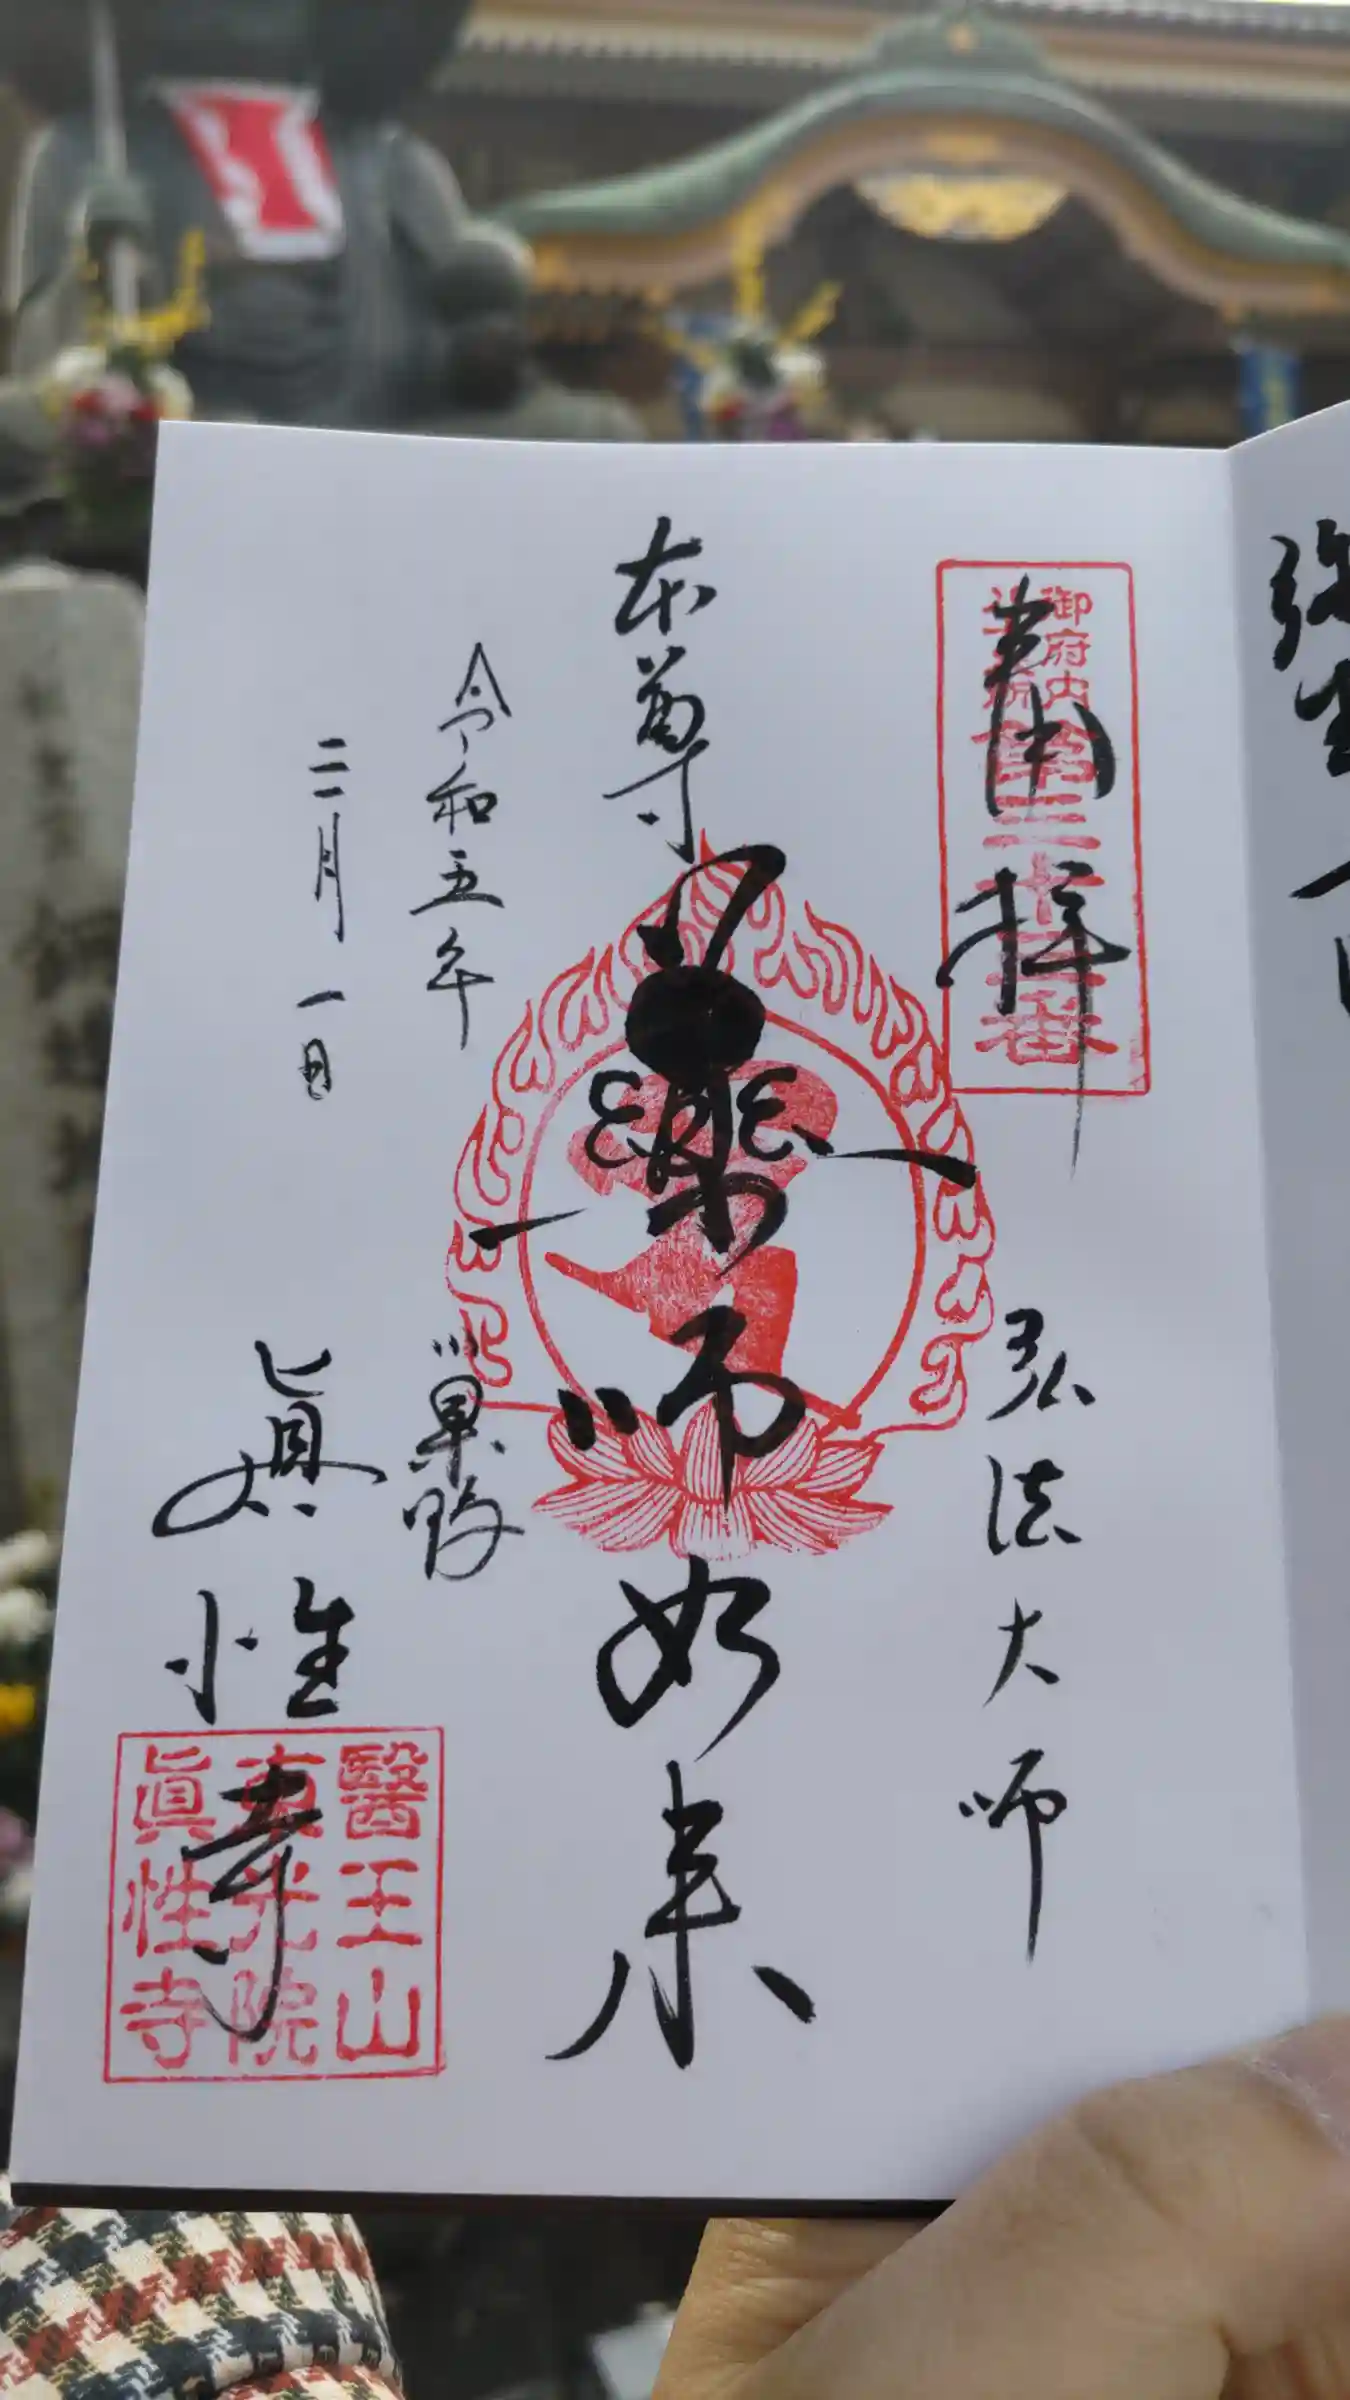 奉拝
御府内
第三十三番
弘法大師
本尊
藥師如来
令和五年
三月一日
巣鴨
眞性寺
醫王山
東光院
眞性寺